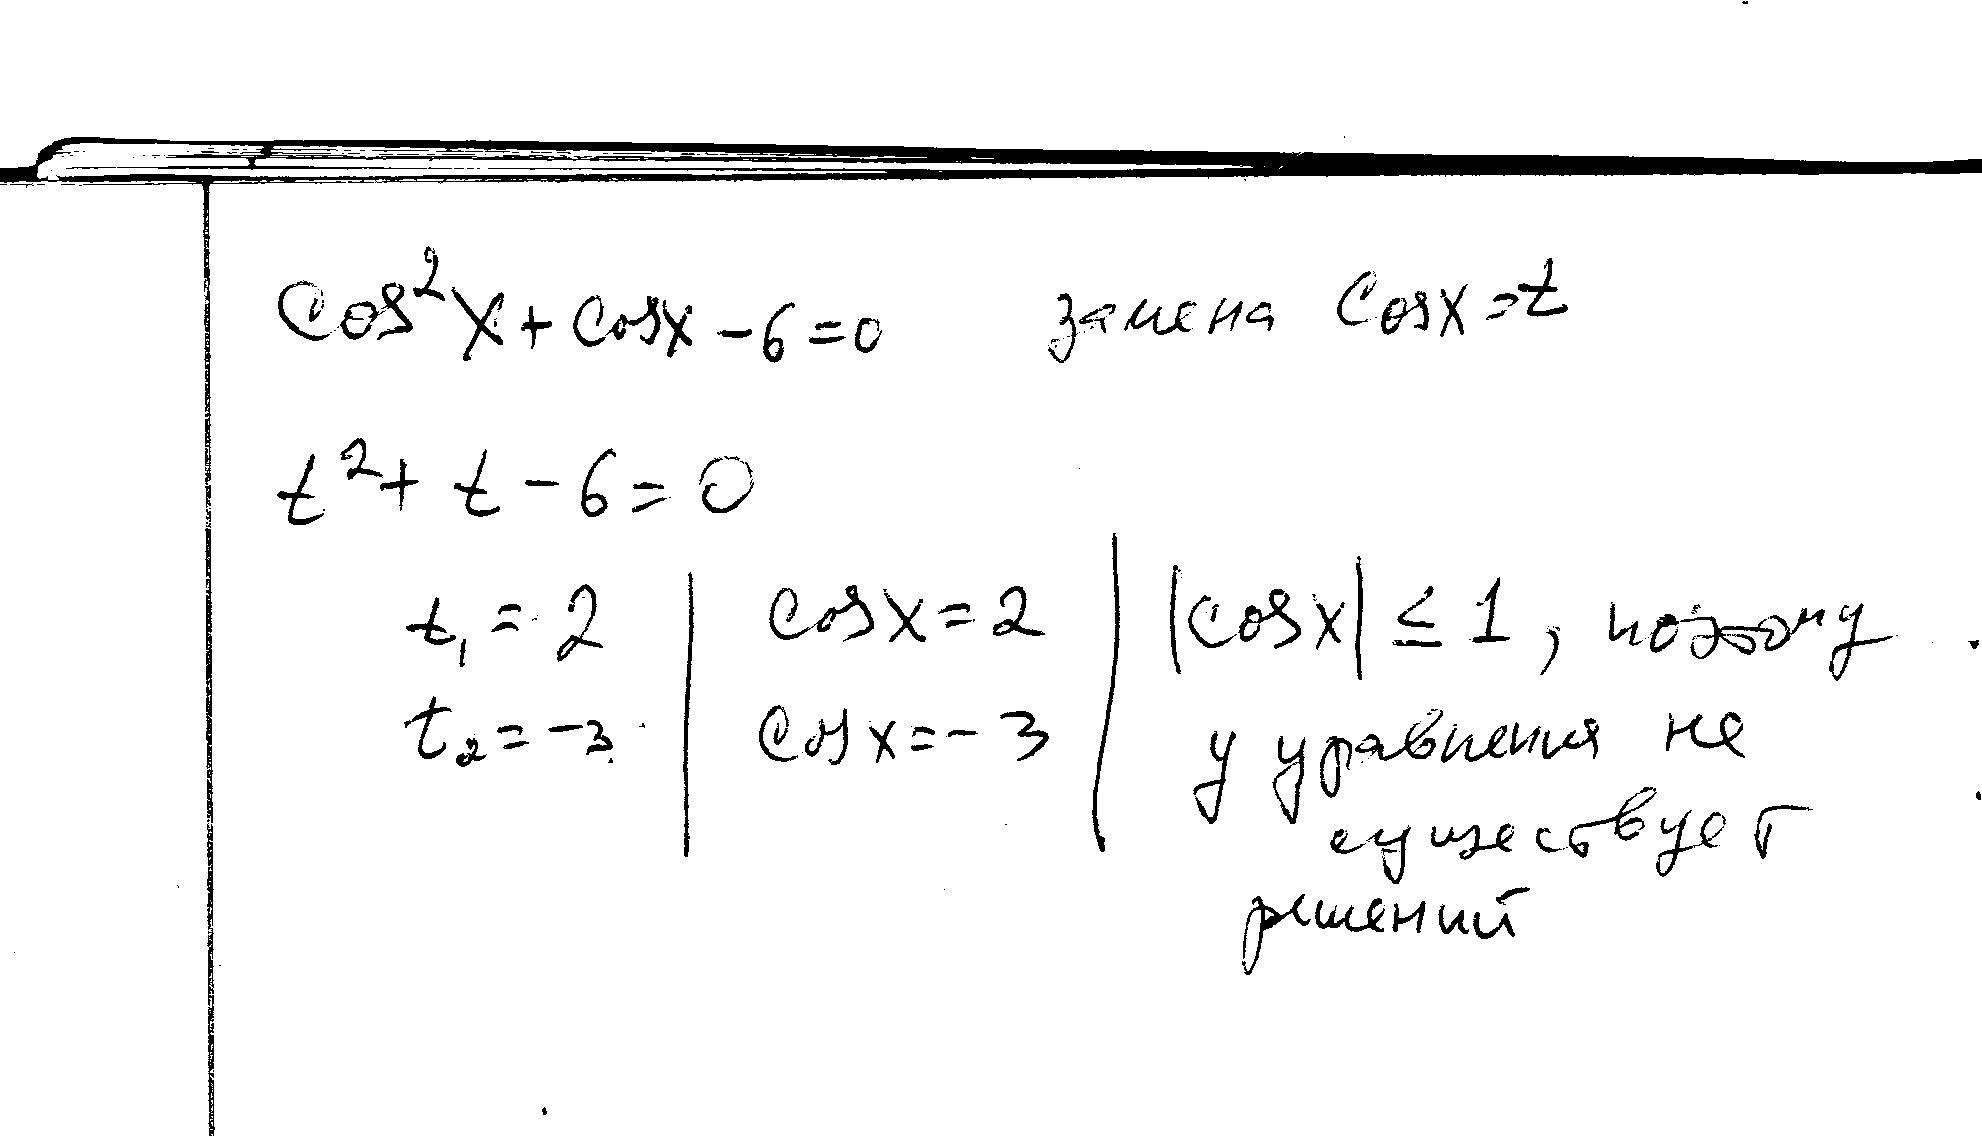 cos²x + cosx - 6 = 0 замена cosx = t
t² + t - 6 = 0
t₁ = 2 | cosx = 2 | |cosx| ≤ 1, поэтому
t₂ = -3 | cosx = -3 | у уравнения не
существует
решений